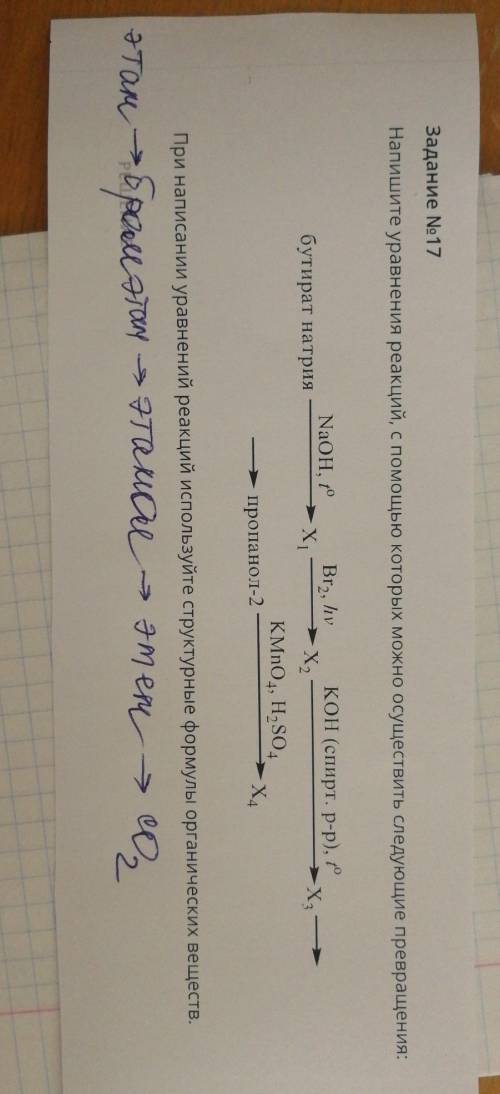 Задание №17
Напишите уравнения реакций, с помощью которых можно осуществить следующие превращения:
бутират натрия —NaOH, t°→ X₁ —Br₂, hν→ X₂ —KOH (спирт. р-р), t°→ X₃ →
→ пропанол-2 —KMnO₄, H₂SO₄→ X₄
При написании уравнений реакций используйте структурные формулы органических веществ.
этан → бромэтан → этанол → этен → CO₂